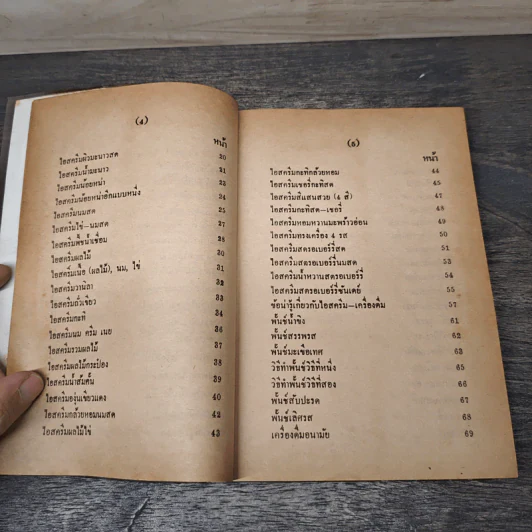 (4)
หน้า
ไอสครีมผิวมะนาวสด 20
ไอสครีมน้ำมะนาว 21
ไอสครีมน้อยหน่า 22
ไอสครีมน้อยหน่าอีกแบบหนึ่ง 24
ไอสครีมนมสด 25
ไอสครีมไข่-นมสด 27
ไอสครีมพีชน้ำเชื่อม 28
ไอสครีมผลไม้ 30
ไอสครีมเนื้อ (ผลไม้), นม, ไข่ 31
ไอสครีมวานิลา 32
ไอสครีมถั่วเขียว 33
ไอสครีมกะทิ 34
ไอสครีมนม ครีม เนย 36
ไอสครีมรวมผลไม้ 37
ไอสครีมผลไม้กระป๋อง 38
ไอสครีมน้ำส้มคั้น 39
ไอสครีมองุ่นเขียวแดง 40
ไอสครีมกล้วยหอมนมสด 42
ไอสครีมผลไม้ไข่ 43
(5)
หน้า
ไอสครีมกะทิกล้วยหอม 44
ไอสครีมเชอรี่กะทิสด 45
ไอสครีมสีแสนสวย (4 สี) 47
ไอสครีมกะทิสด-เชอรี่ 48
ไอสครีมหอมหวานมะพร้าวอ่อน 49
ไอสครีมทรงเครื่อง 4 รส 50
ไอสครีมสตรอเบอร์รี่สด 51
ไอสครีมสตรอเบอร์รี่นมสด 53
ไอสครีมน้ำหวานสตรอเบอร์รี่ 54
ไอสครีมสตรอเบอร์รี่ซันเดย์ 55
ข้อน่ารู้เกี่ยวกับไอสครีม-เครื่องดื่ม 57
พั้นช์น้ำขิง 61
พั้นช์สรรพรส 62
พั้นช์มะเขือเทศ 63
วิธีทำพั้นช์วิธีที่หนึ่ง 65
วิธีทำพั้นช์วิธีที่สอง 66
พั้นช์สับปะรด 67
พั้นช์เลิศรส 68
เครื่องดื่มอนามัย 69